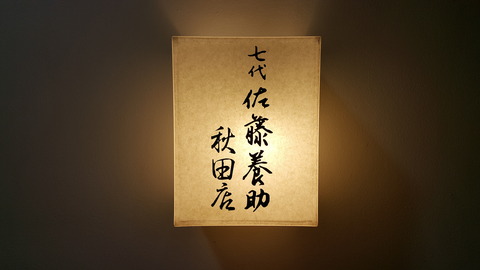 七代佐藤養助
秋田店